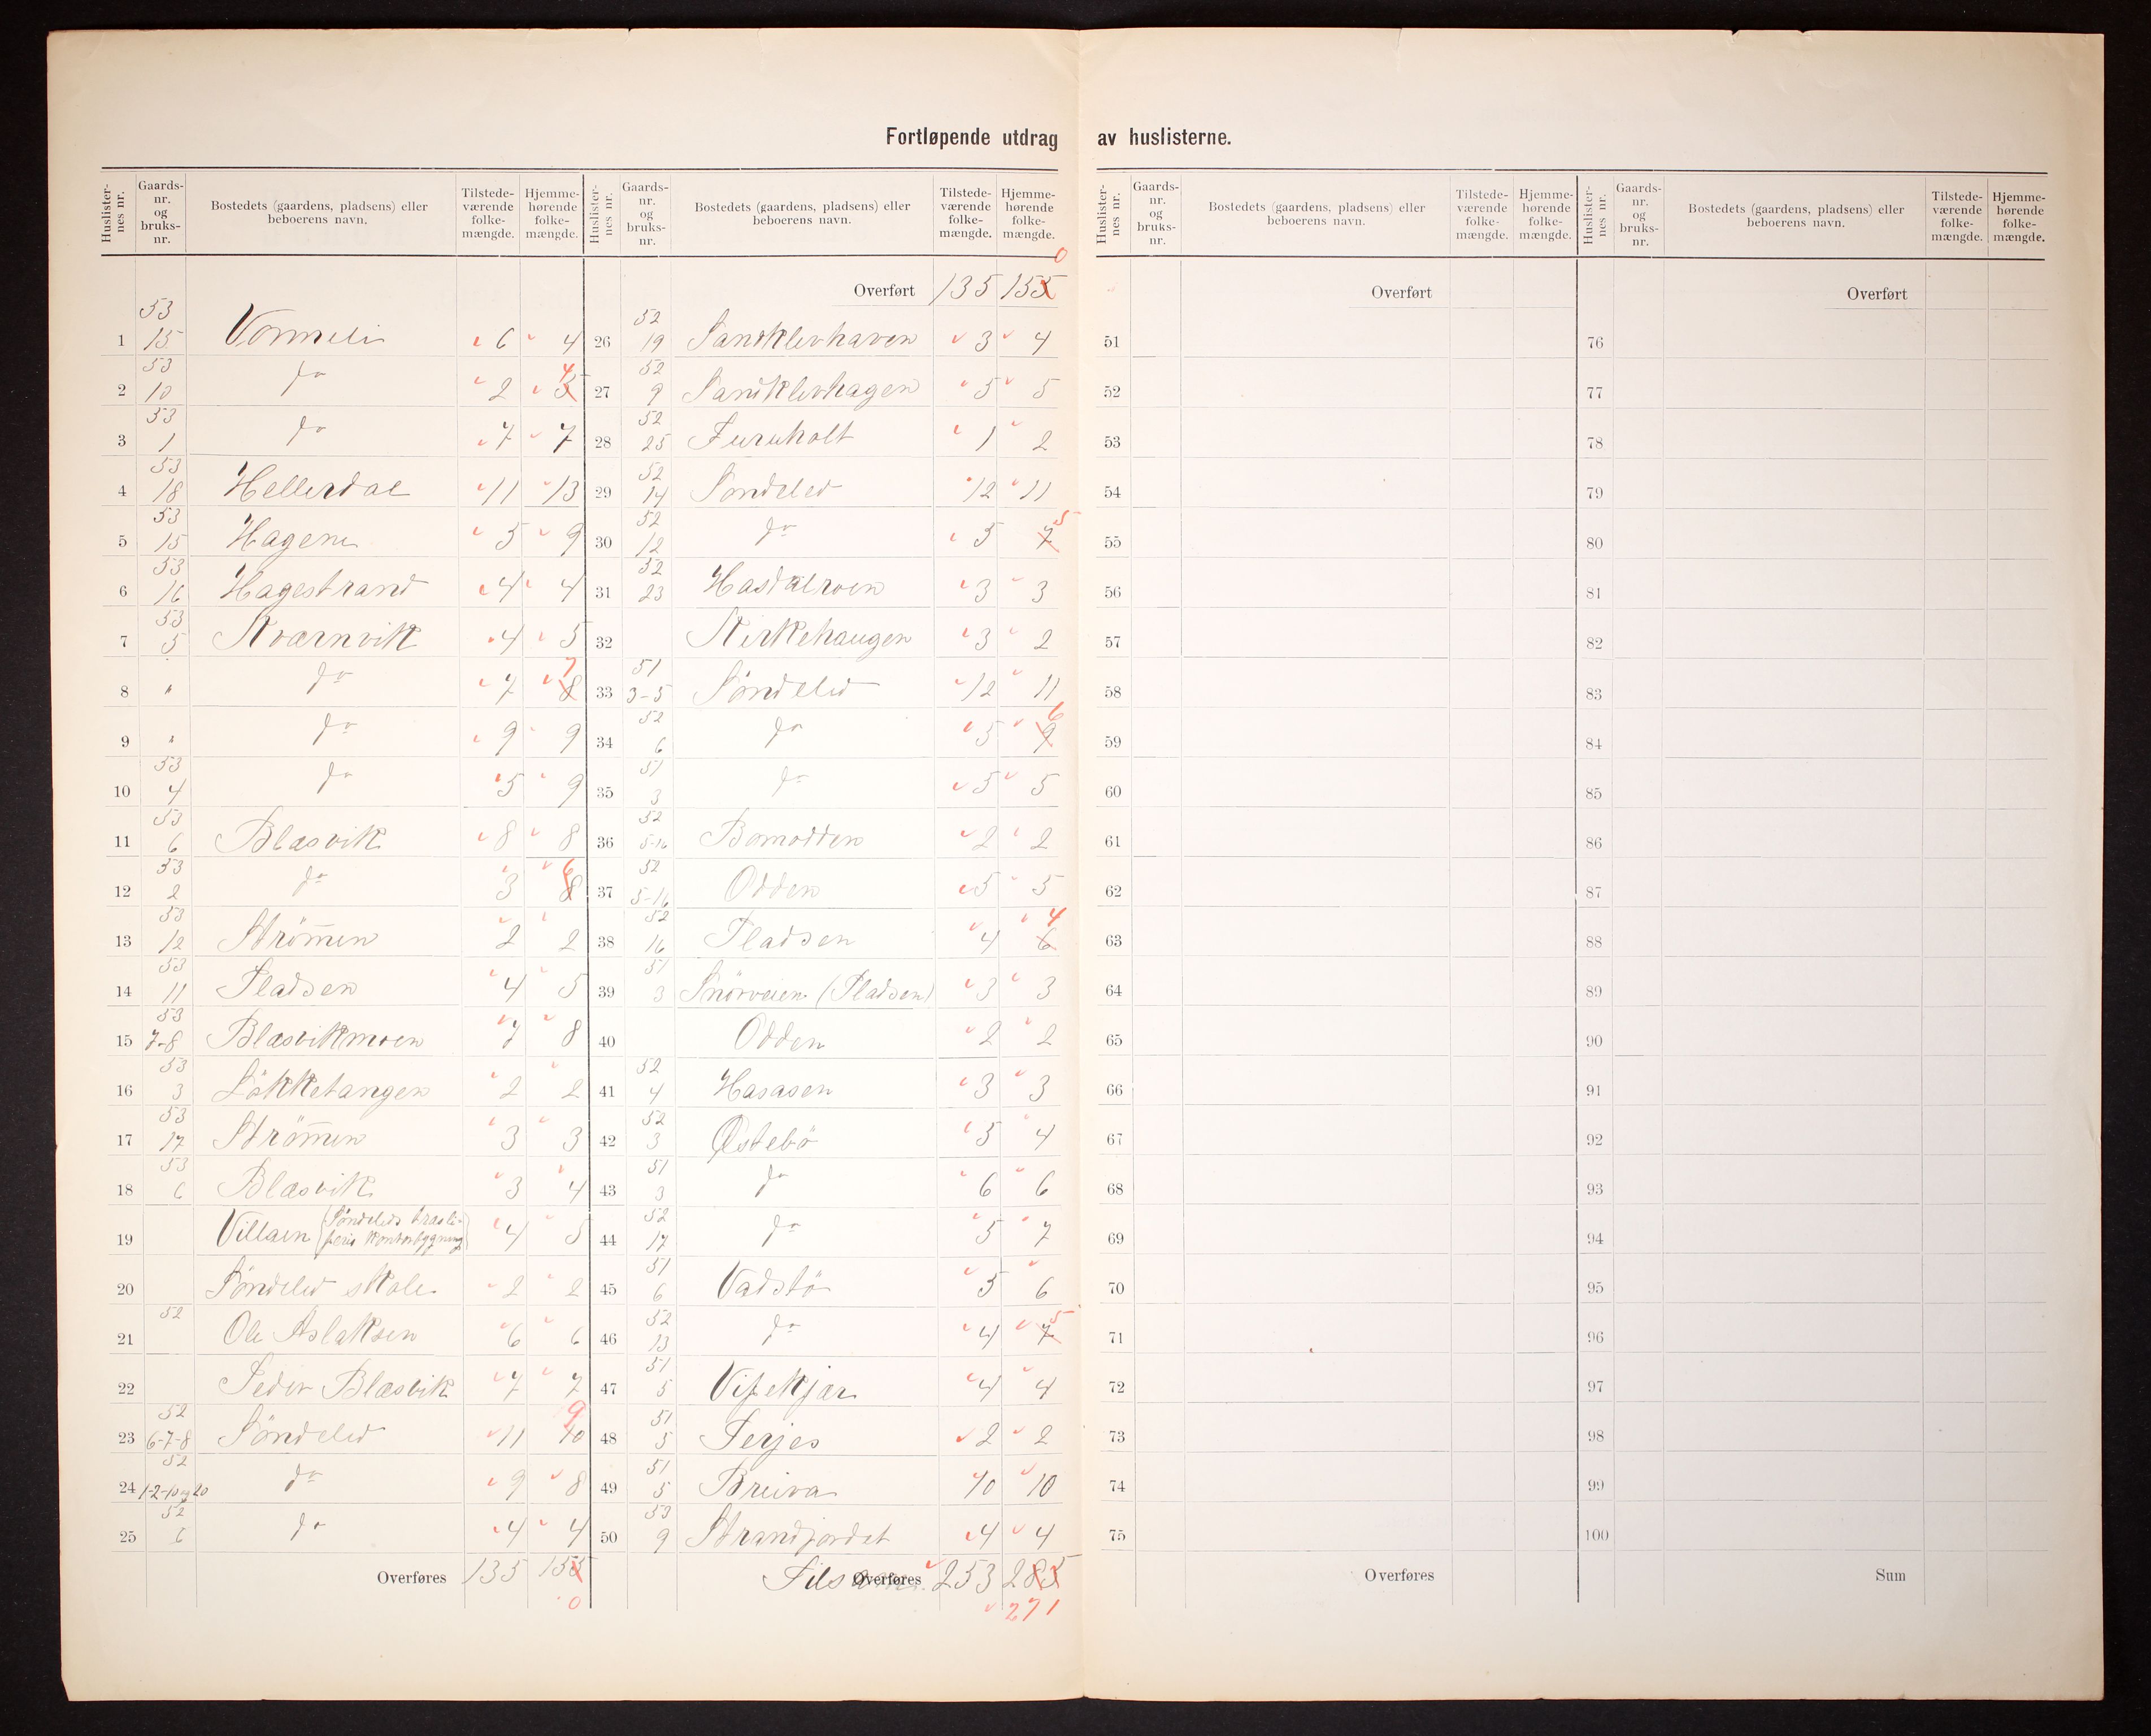 Fortløpende utdrag av huslisterne.
Huslister-nes nr. Gaards-nr. og bruks-nr. Bostedets (gaardens, pladsens) eller beboerens navn. Tilstede-værende folke-mængde. Hjemme-hørende folke-mængde. Huslister-nes nr. Gaards-nr. og bruks-nr. Bostedets (gaardens, pladsens) eller beboerens navn. Tilstede-værende folke-mængde. Hjemme-hørende folke-mængde.
1 53 15 Vormeli 6 4
2 53 10 do 2 5 4
3 53 1 do 7 7
4 53 18 Hellerdal 11 13
5 53 15 Hagene 5 9
6 53 16 Hagestrand 4 4
7 53 5 Kværnvik 4 5
8 " do 7 8 7
9 " do 9 9
10 53 4 do 5 9
11 53 6 Blæsvik 8 8
12 53 2 do 3 8 6
13 53 12 Strömen 2 2
14 53 11 Pladsen 4 5
15 53 7-8 Blæsvikmoen 7 8
16 53 3 Lökketangen 2 2
17 53 17 Strömen 3 3
18 53 6 Blæsvik 3 4
19 Villaen (Söndeleds træsli-peris kontorbygning) 4 5
20 Söndeled skole 2 2
21 52 Ole Aslaksen 6 6
22 Peder Blæsvik 7 7
23 52 6-7-8 Söndeled 11 10 9
24 52 1-2-10 og 20 do 9 8
25 52 6 do 4 4
Overføres 135 155 0
Overført 135 155 0
26 52 19 Sandklevhaven 3 4
27 52 9 Sandklevhagen 5 5
28 52 25 Furuholt 1 2
29 52 14 Söndeled 12 11
30 52 12 do 5 7 5
31 52 23 Hasdalroen 3 3
32 Kirkehaugen 3 2
33 51 3-5 Söndeled 12 11
34 52 6 do 5 9 6
35 51 3 do 5 5
36 52 5-16 Bomodden 2 2
37 52 5-16 Odden 5 5
38 52 16 Pladsen 4 6 4
39 51 3 Snörveien (Pladsen) 3 3
40 Odden 2 2
41 52 4 Hasåsen 3 3
42 52 3 Østebö 5 4
43 51 3 do 6 6
44 52 17 do 5 7
45 51 6 Vadstö 5 6
46 52 13 do 4 7 5
47 51 5 Vipekjær 4 4
48 51 5 Terjes 2 2
49 51 5 Breiva 10 10
50 53 9 Strandjordet 4 4
Overføres Tilsam. 253 285
271
Huslister-nes nr. Gaards-nr. og bruks-nr. Bostedets (gaardens, pladsens) eller beboerens navn. Tilstede-værende folke-mængde. Hjemme-hørende folke-mængde. Huslister-nes nr. Gaards-nr. og bruks-nr. Bostedets (gaardens, pladsens) eller beboerens navn. Tilstede-værende folke-mængde. Hjemme-hørende folke-mængde.
Overført
51
52
53
54
55
56
57
58
59
60
61
62
63
64
65
66
67
68
69
70
71
72
73
74
75
Overføres
Overført
76
77
78
79
80
81
82
83
84
85
86
87
88
89
90
91
92
93
94
95
96
97
98
99
100
Sum